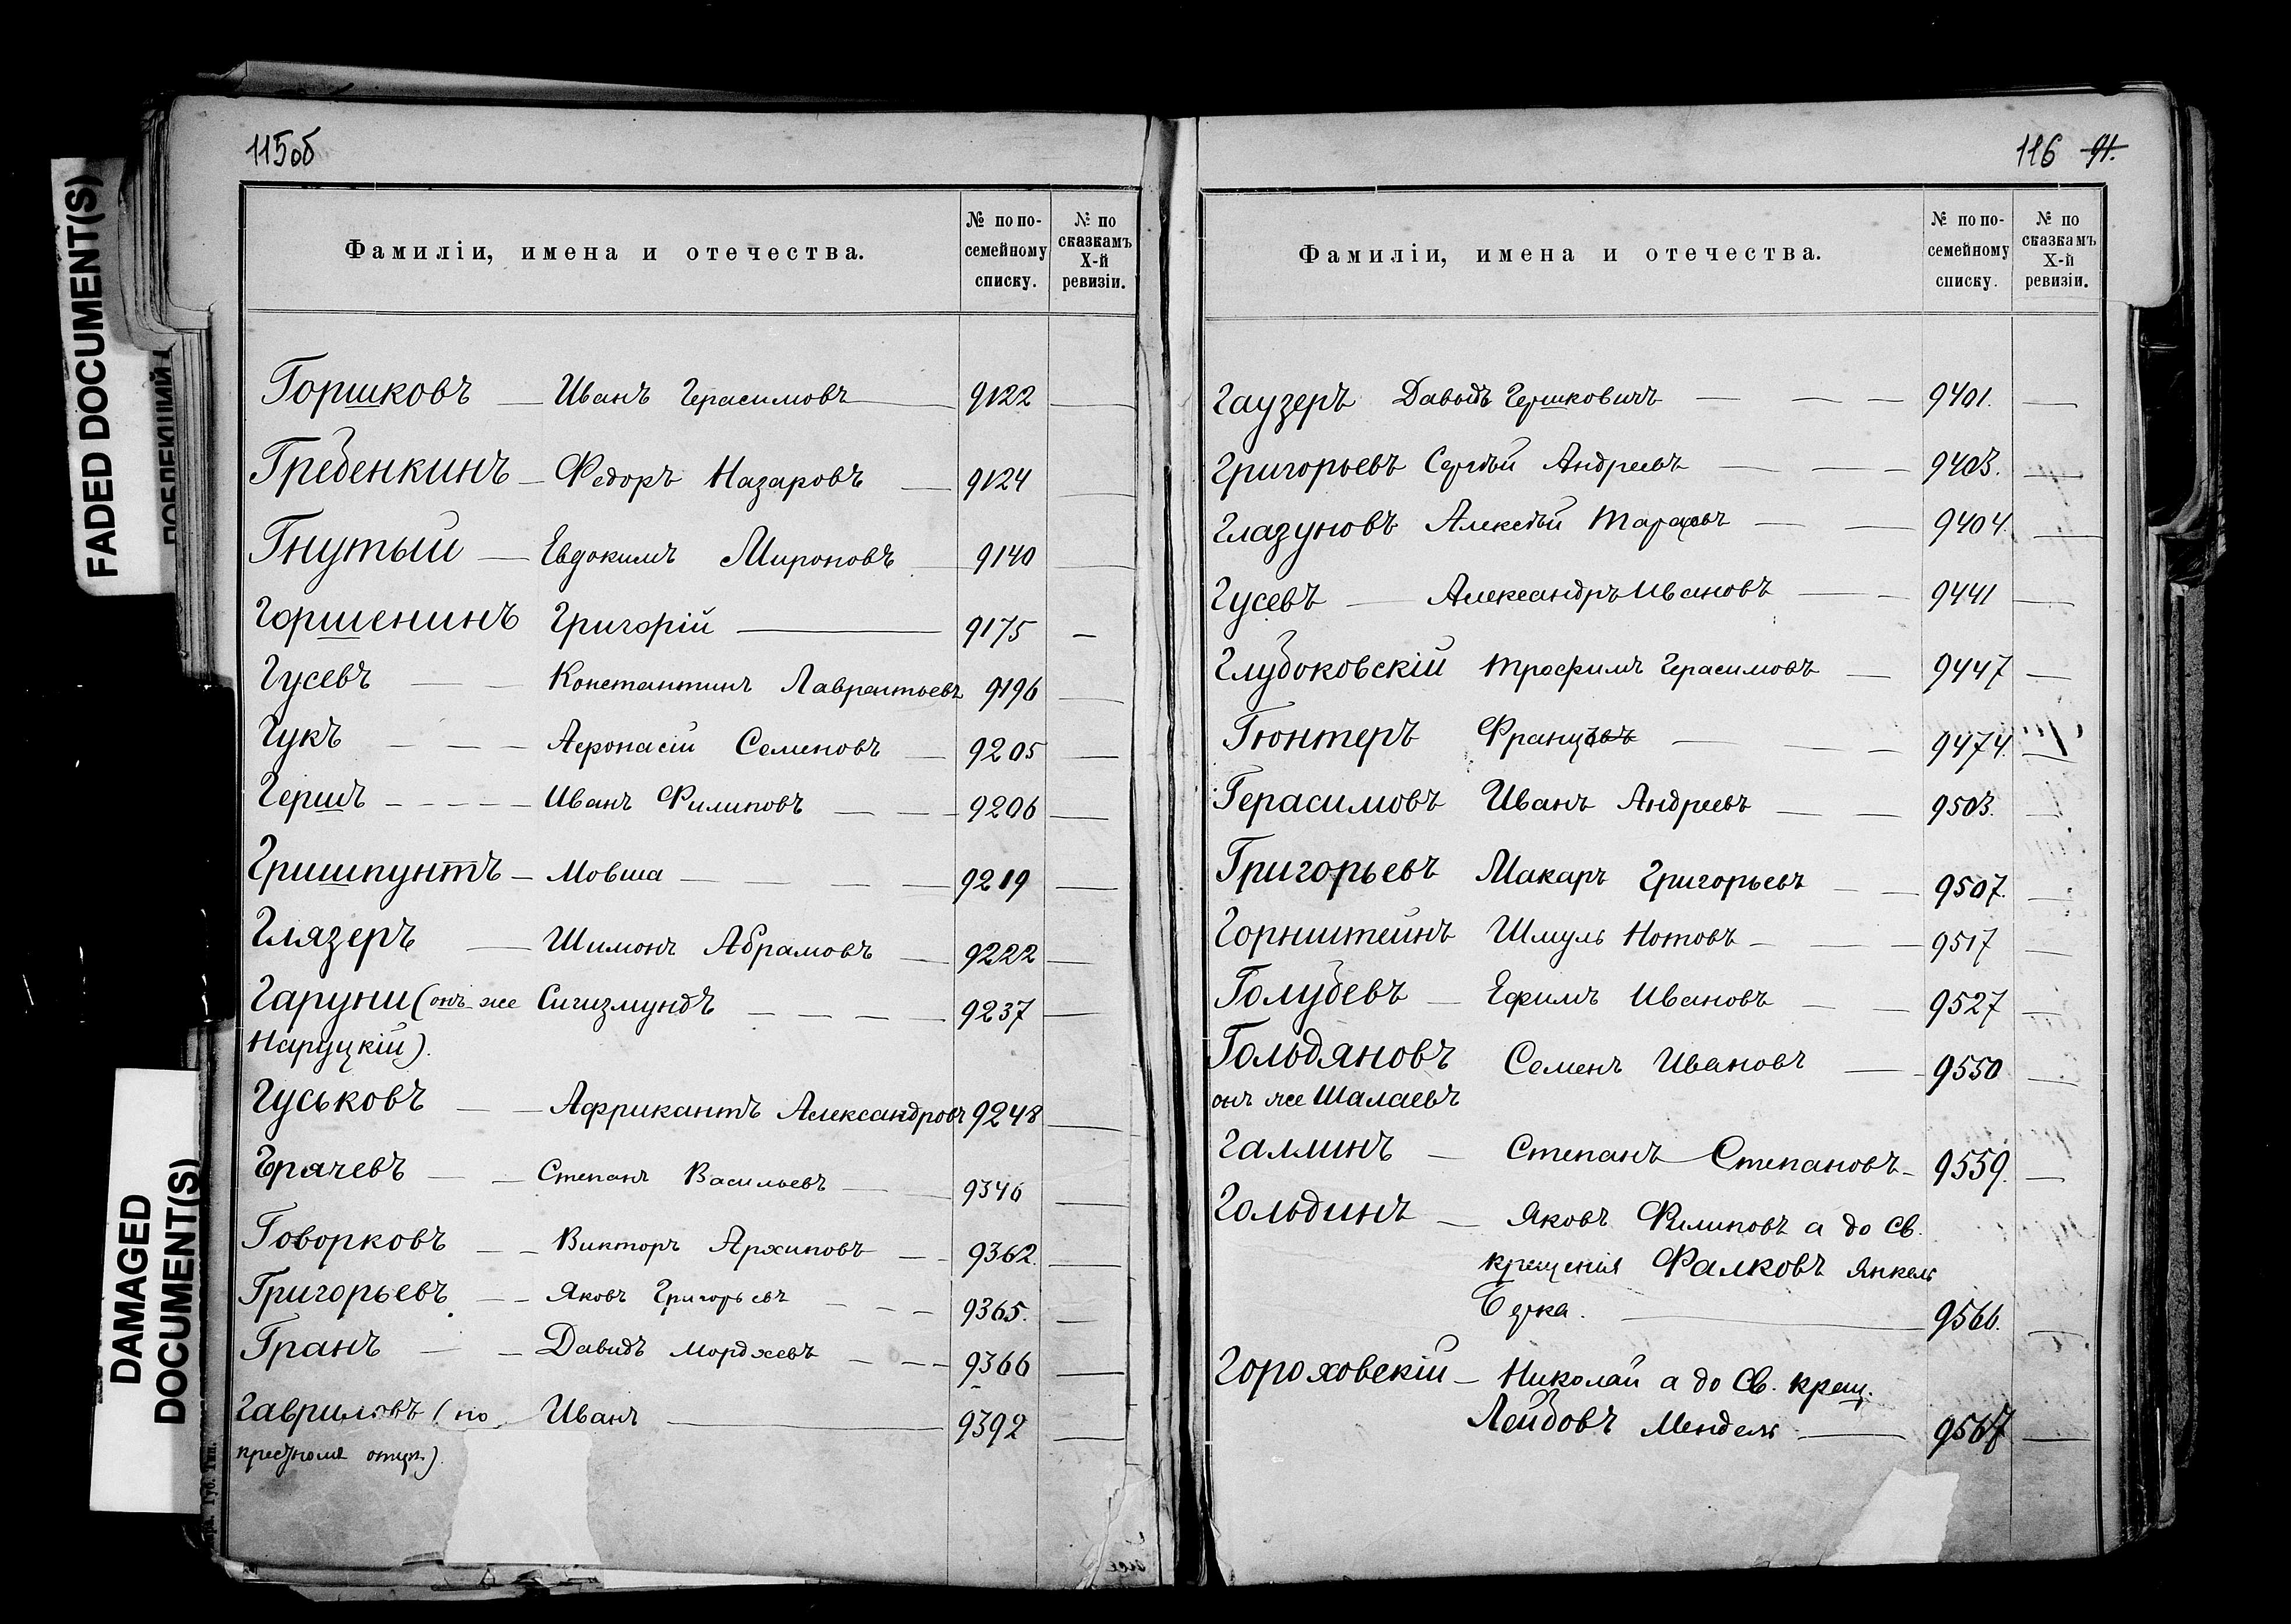 115об
Фамиліи, имена и отечества.
№ по по-
семейному
списку.
№ по
сказкамъ
X-й
ревизіи.
Горшковъ — Иванъ Герасимовъ — 9122 —
Гребенкинъ — Федоръ Назаровъ — 9124 —
Гнутый — Евдокимъ Мироновъ — 9140 —
Горшенинъ Григорій — 9175 —
Гусевъ — — Константинъ Лаврентьевъ 9196 —
Гукъ — — — Афонасій Семеновъ — 9205 —
Гершъ — — — — Иванъ Филиповъ — — — 9206 —
Гришпунтъ — Мовша — — — — 9219 —
Глязеръ — Шимонъ Абрамовъ — 9222 —
Гаруни (онъ же Сигизмундъ — — — — 9237 —
Наруцкій).
Гуськовъ — — Африкантъ Александровъ 9248 —
Грачевъ — — Степанъ Васильевъ — — 9346 —
Говорковъ — — Викторъ Архиповъ — — 9362. —
Григорьевъ — — Яковъ Григорьевъ — — — 9365. —
Гранъ — — Давидъ Мордхевъ — — — 9366 —
Гавриловъ (по Иванъ — 9392 —
крестному отцу).
116 91.
Фамиліи, имена и отечества.
№ по по-
семейному
списку.
№ по
сказкамъ
X-й
ревизіи.
Гаузеръ Давыдъ Гершковичъ — — — 9401. —
Григорьевъ Сергѣй Андреевъ — — — 9403. —
Глазуновъ Алексѣй Тарасовъ — — 9404. —
Гусевъ — Александръ Ивановъ — — 9441 —
Глубоковскій Трофимъ Герасимовъ — 9447 —
Гюнтеръ Францъ — — — 9474. —
Герасимовъ Иванъ Андреевъ — — 9503. —
Григорьевъ Макаръ Григорьевъ — — 9507. —
Горнштейнъ Шмуль Нотовъ — — — 9517 —
Голубевъ — Ефимъ Ивановъ — — 9527 —
Гольдяновъ Семенъ Ивановъ — — 9550 —
онъ же Шалаевъ
Галлинъ — Степанъ Степановъ — 9559. —
Гольдинъ — Яковъ Филиповъ а до Св.
крещенія Фалковъ Янкель
Берка. — 9566. —
Гороховскій — Николай а до Св. крещ.
Лейбовъ Мендель — 9567 —
FADED DOCUMENT(S)
DAMAGED
DOCUMENT(S)